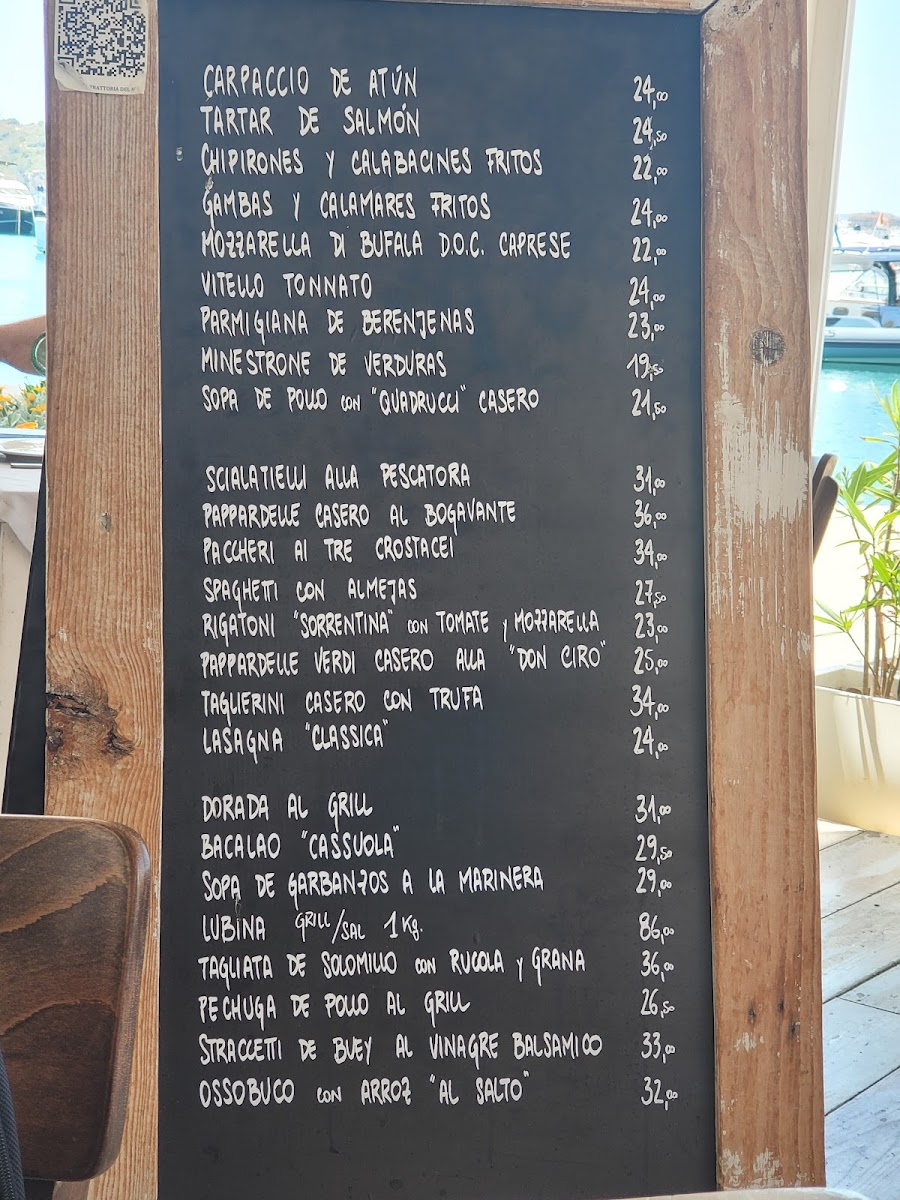 TRATTORIA DEL
CARPACCIO DE ATÚN 24,00
TARTAR DE SALMÓN 24,50
CHIPIRONES Y CALABACINES FRITOS 22,00
GAMBAS Y CALAMARES FRITOS 24,00
MOZZARELLA DI BUFALA D.O.C. CAPRESE 22,00
VITELLO TONNATO 24,00
PARMIGIANA DE BERENJENAS 23,00
MINESTRONE DE VERDURAS 19,50
SOPA DE POLLO CON "QUADRUCCI" CASERO 21,50
SCIALATIELLI ALLA PESCATORA 31,00
PAPPARDELLE CASERO AL BOGAVANTE 36,00
PACCHERI AI TRE CROSTACEI 34,00
SPAGHETTI CON ALMEJAS 27,50
RIGATONI "SORRENTINA" CON TOMATE Y MOZZARELLA 23,00
PAPPARDELLE VERDI CASERO ALLA "DON CIRO" 25,00
TAGLIERINI CASERO CON TRUFA 34,00
LASAGNA "CLASSICA" 24,00
DORADA AL GRILL 31,00
BACALAO "CASSUOLA" 29,50
SOPA DE GARBANZOS A LA MARINERA 29,00
LUBINA GRILL/SAL 1 Kg. 86,00
TAGLIATA DE SOLOMILLO CON RUCOLA Y GRANA 36,00
PECHUGA DE POLLO AL GRILL 26,50
STRACCETTI DE BUEY AL VINAGRE BALSAMICO 33,00
OSSOBUCO CON ARROZ "AL SALTO" 32,00